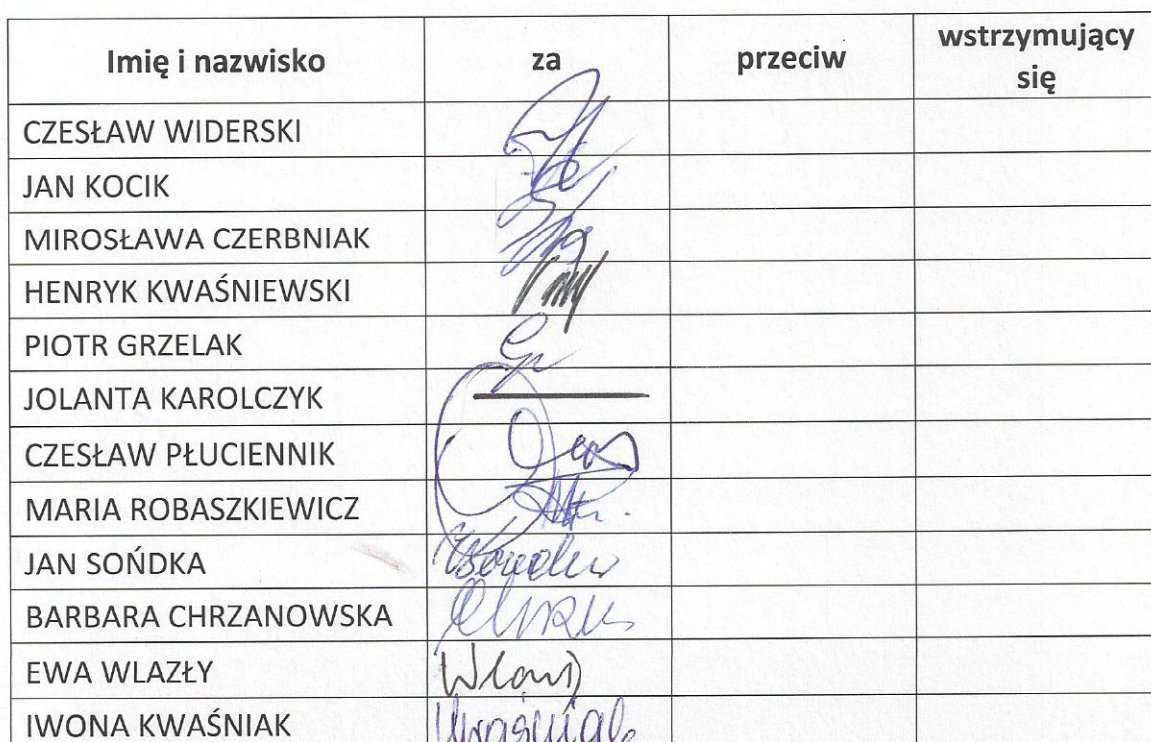 Imię i nazwisko za przeciw wstrzymujący się
CZESŁAW WIDERSKI
JAN KOCIK
MIROSŁAWA CZERBNIAK
HENRYK KWAŚNIEWSKI
PIOTR GRZELAK
JOLANTA KAROLCZYK
CZESŁAW PŁUCIENNIK
MARIA ROBASZKIEWICZ
JAN SOŃDKA
BARBARA CHRZANOWSKA
EWA WLAZŁY
IWONA KWAŚNIAK